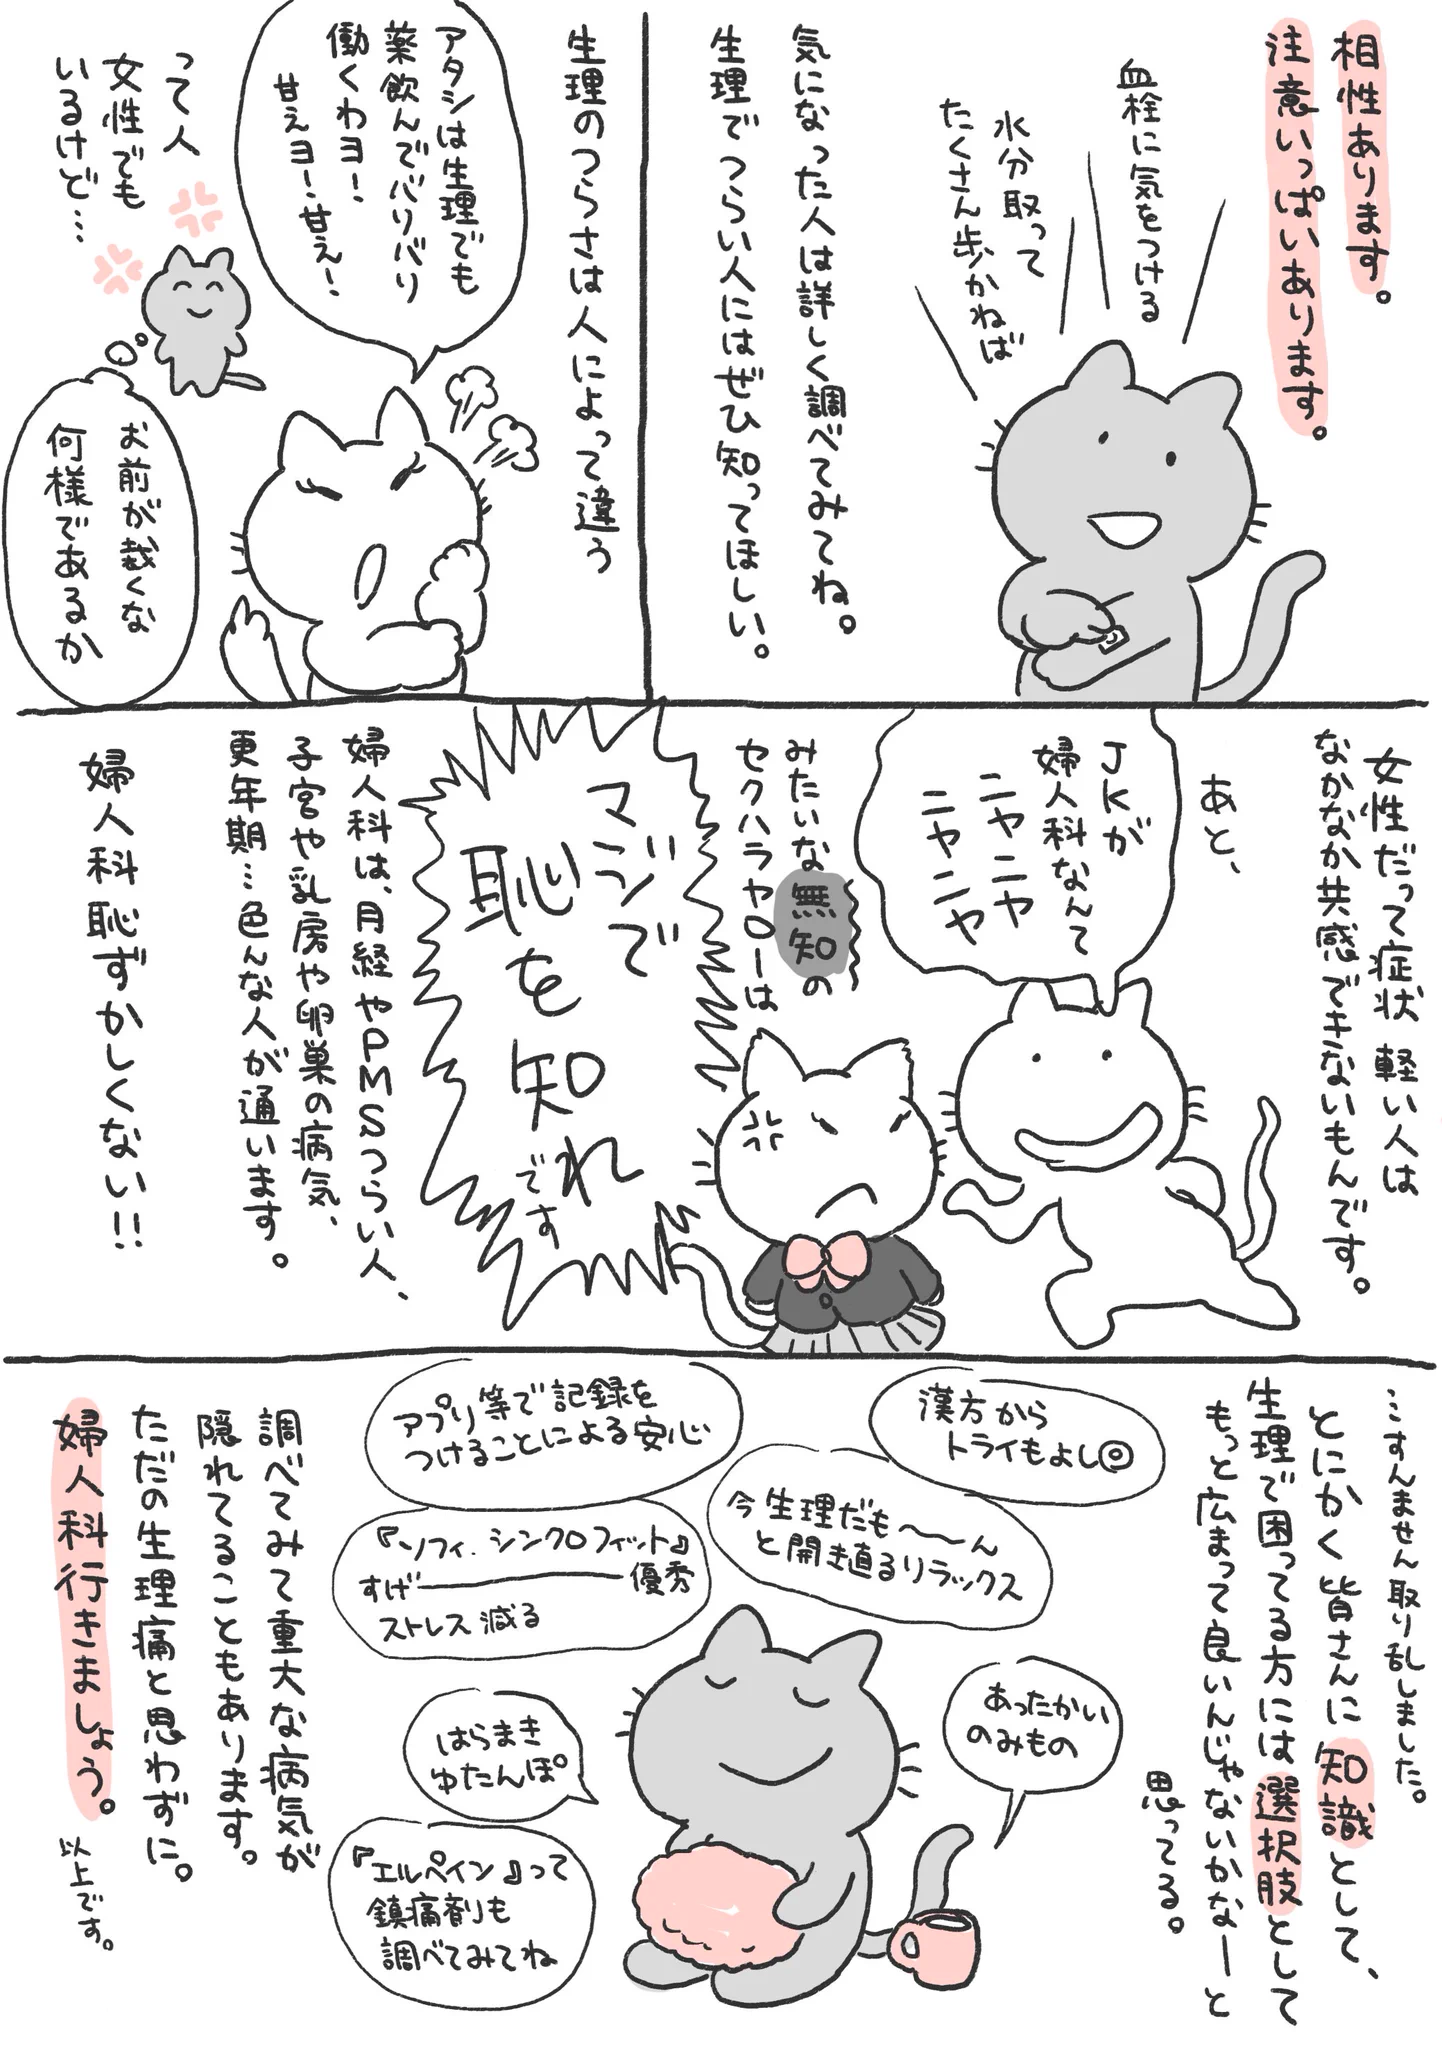 相性あります。
注意いっぱいあります。
血栓に気をつける
水分取って
たくさん歩かねば
気になった人は詳しく調べてみてね。
生理でつらい人にはぜひ知ってほしい。
生理のつらさは人によって違う
アタシは生理でも
薬飲んでバリバリ
働くわヨ!
甘えヨ!甘え!
って人
女性でも
いるけど…
お前が裁くな
何様であるか
女性だって症状軽い人は
なかなか共感できないもんです。
あと、
JKが
婦人科なんて
ニヤニヤ
ニヤニヤ
みたいな無知の
セクハラヤローは
マジで
恥を知れ
です
婦人科は、月経やPMSつらい人、
子宮や乳房や卵巣の病気、
更年期…色んな人が通います。
婦人科恥ずかしくない!!
…すんません取り乱しました。
とにかく皆さんに知識として、
生理で困ってる方には選択肢として
もっと広まって良いんじゃないかなーと
思ってる。
漢方から
トライもよし◎
今生理だも〜〜ん
と開き直るリラックス
アプリ等で記録を
つけることによる安心
『ソフィ.シンクロフィット』
すげー優秀
ストレス減る
あったかい
のみもの
はらまき
ゆたんぽ
『エルペイン』って
鎮痛剤も
調べてみてね
調べてみて重大な病気が
隠れてることもあります。
ただの生理痛と思わずに。
婦人科行きましょう。
以上です。